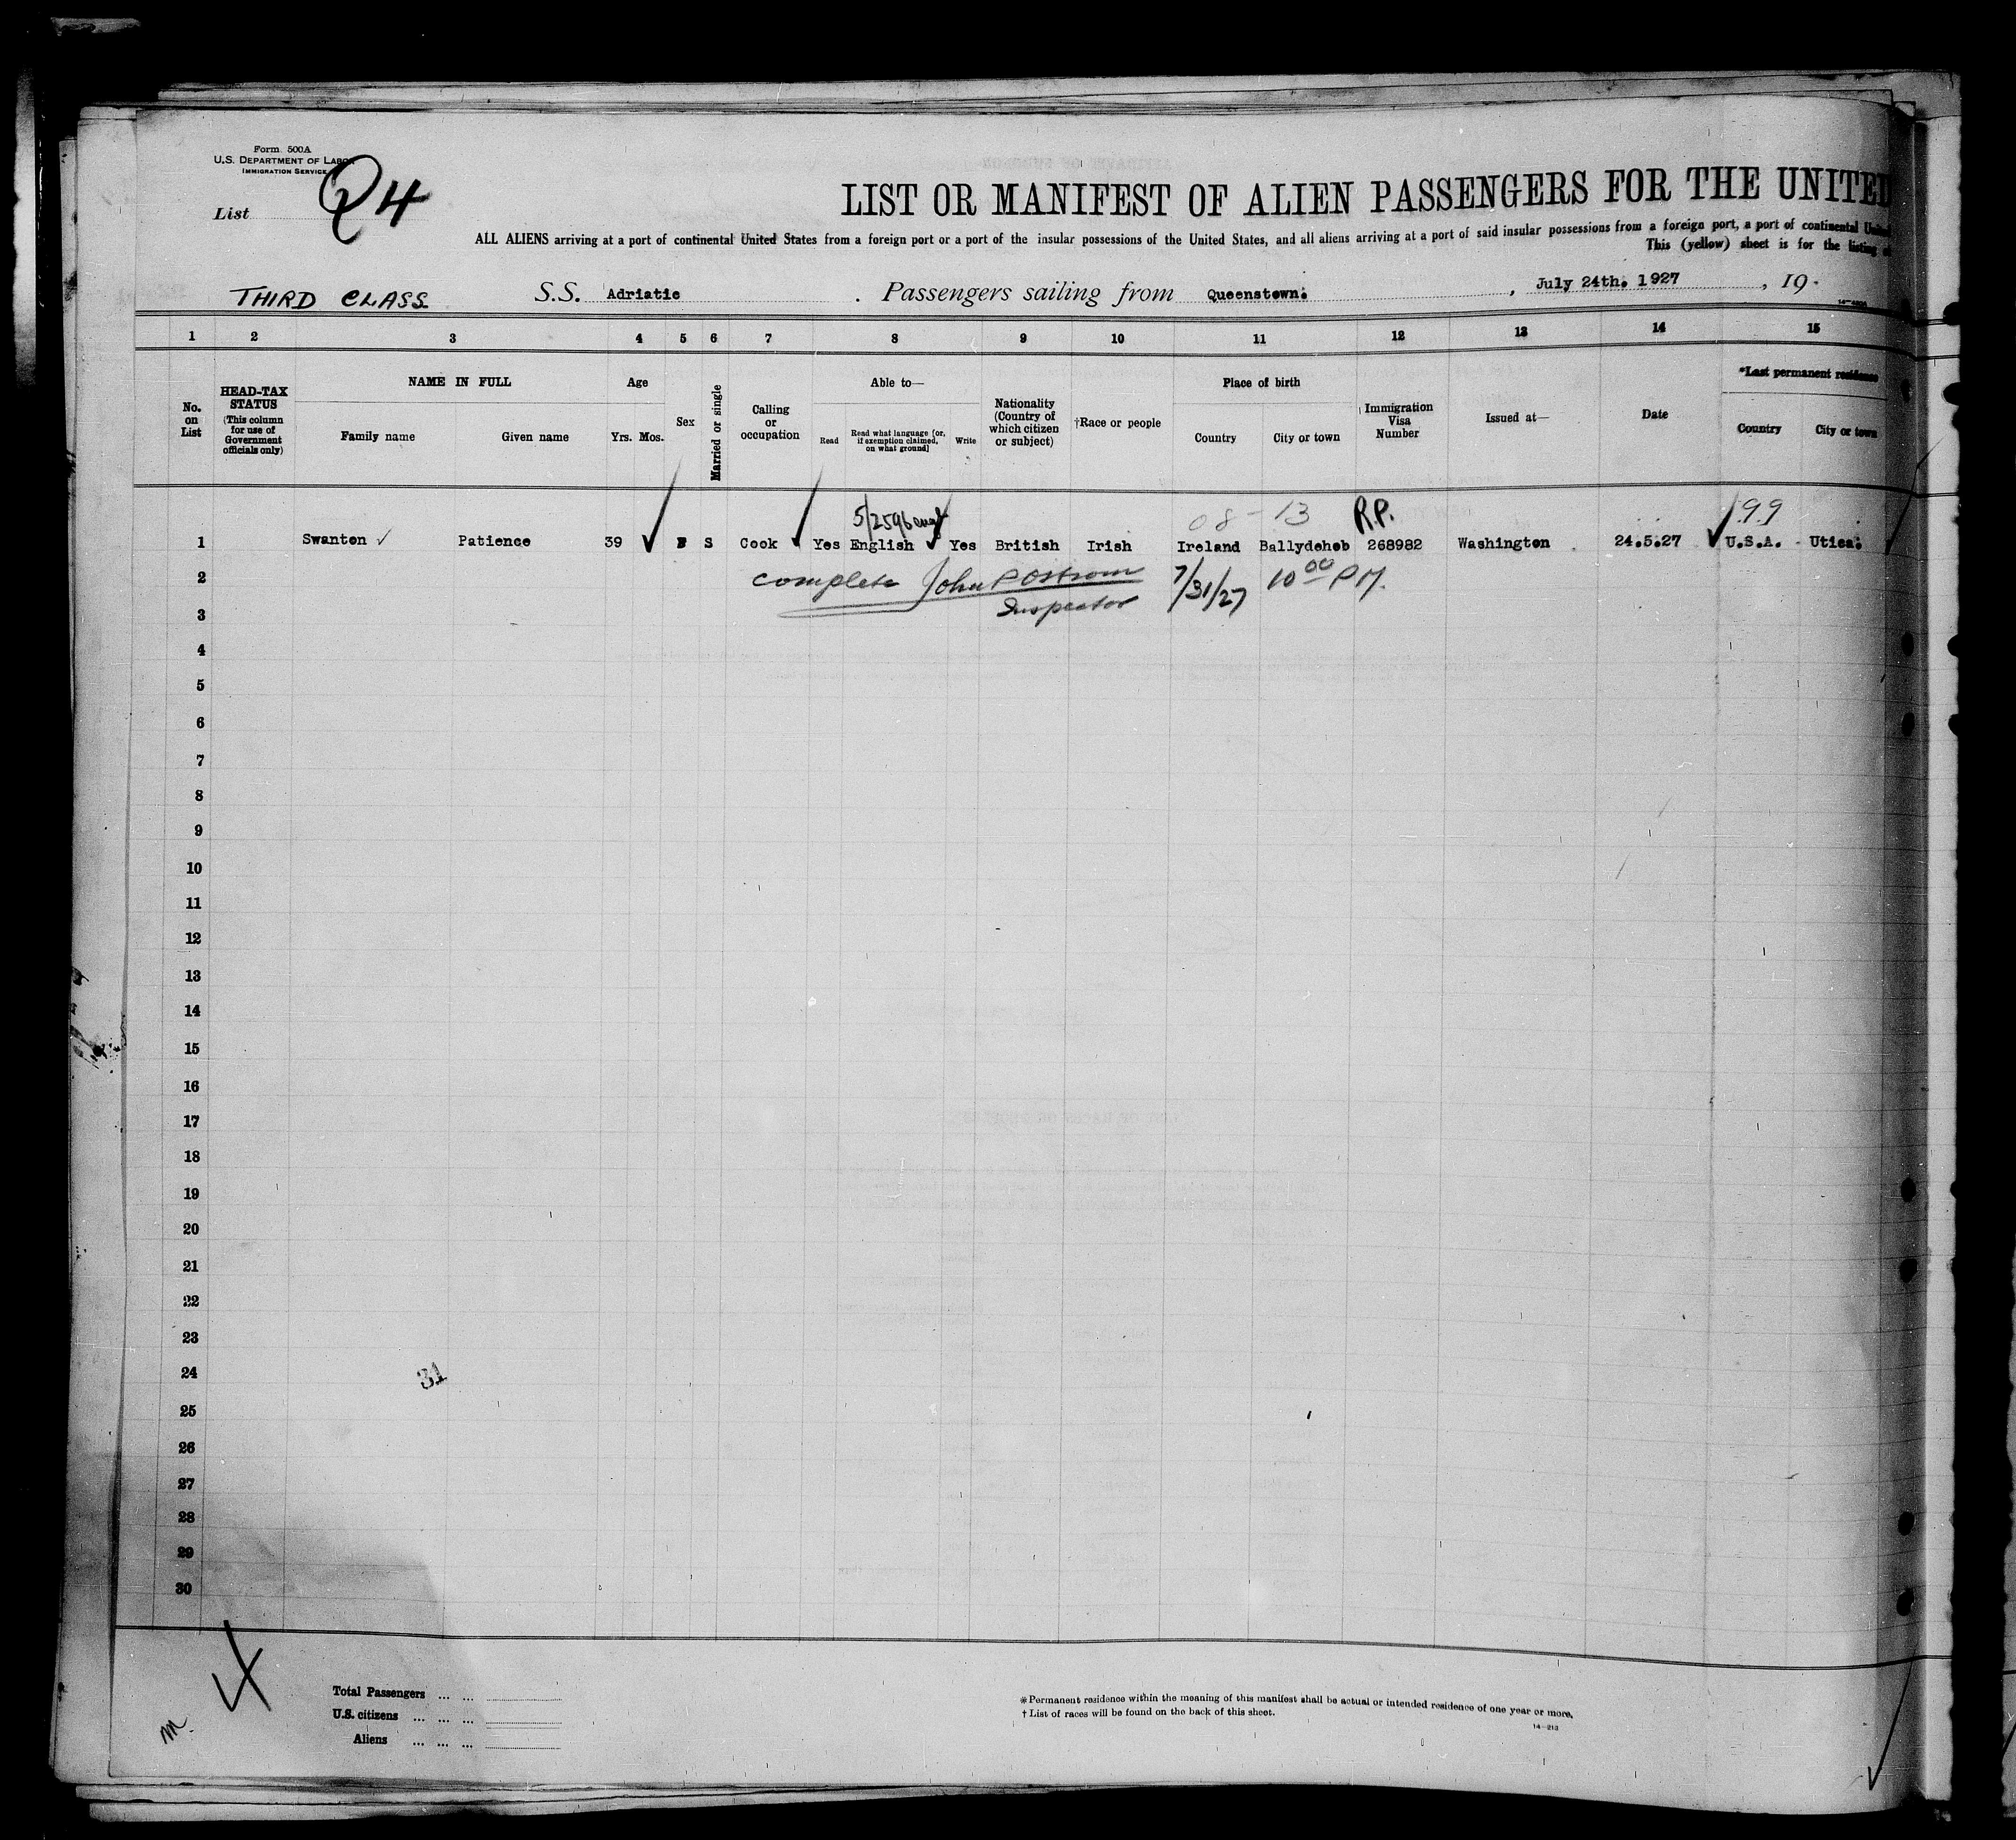 Form 500A
U.S. DEPARTMENT OF LABOR
IMMIGRATION SERVICE
List 24
LIST OR MANIFEST OF ALIEN PASSENGERS FOR THE UNITED
ALL ALIENS arriving at a port of continental United States from a foreign port or a port of the insular possessions of the United States, and all aliens arriving at a port of said insular possessions from a foreign port, a port of continental United
This (yellow) sheet is for the listing of
THIRD CLASS S.S. Adriatic . Passengers sailing from Queenstown. , July 24th. 1927 , 19
1 2 3 4 5 6 7 8 9 10 11 12 13 14 15
No. on List
HEAD-TAX STATUS (This column for use of Government officials only)
NAME IN FULL
Family name Given name
Age
Yrs. Mos.
Sex
Married or single
Calling or occupation
Able to—
Read Read what language [or, if exemption claimed, on what ground] Write
Nationality (Country of which citizen or subject)
†Race or people
Place of birth
Country City or town
Immigration Visa Number
Issued at—
Date
*Last permanent residence
Country City or town
5/2596 08-13 R.P. 99
1 Swanton ✓ Patience 39 ✓ F S Cook ✓ Yes English ✓ Yes British Irish Ireland Ballydehob 268982 Washington 24.5.27 ✓ U.S.A. Utica.
2 complete John P Ostrom 7/31/27 10 00 P.M.
3 Inspector
4
5
6
7
8
9
10
11
12
13
14
15
16
17
18
19
20
21
22
23
24 31
25
26
27
28
29
30
Total Passengers ... ...
U.S. citizens ... ... ...
Aliens ... ... ...
m
* Permanent residence within the meaning of this manifest shall be actual or intended residence of one year or more.
† List of races will be found on the back of this sheet.
14—213